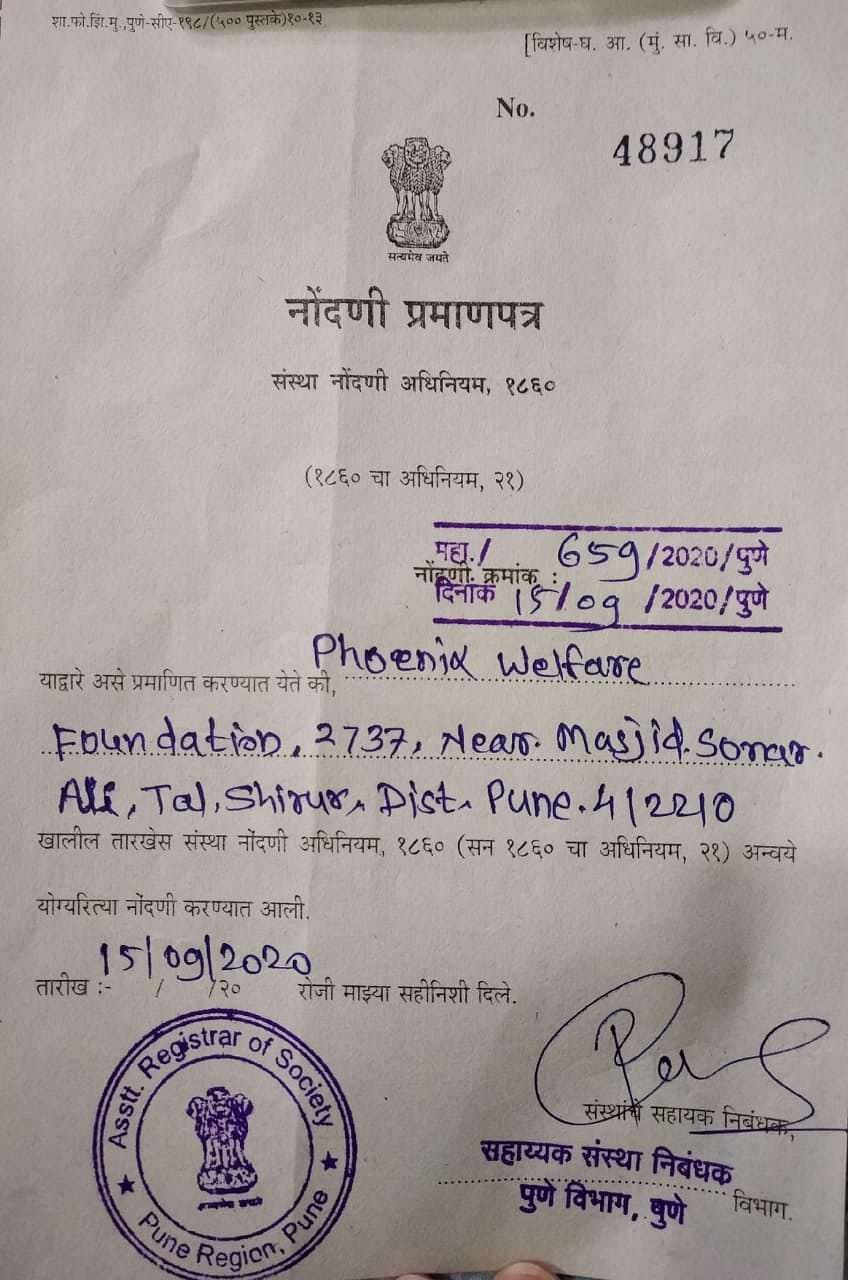 शा.फो.झिं.मु.,पुणे-सीए-१९८/(५०० पुस्तके)१०-१३
[विशेष-घ. आ. (मुं. सा. वि.) ५०-म.
No.
48917
सत्यमेव जयते
नोंदणी प्रमाणपत्र
संस्था नोंदणी अधिनियम, १८६०
(१८६० चा अधिनियम, २१)
महा./ 659/2020/पुणे
नोंदणी क्रमांक :
दिनांक 15/09 /2020/पुणे
याद्वारे असे प्रमाणित करण्यात येते की, Phoenix Welfare
Foundation, 2737, Near. Masjid. Sonar.
Ali, Tal, Shirur, Dist. Pune. 412210
खालील तारखेस संस्था नोंदणी अधिनियम, १८६० (सन १८६० चा अधिनियम, २१) अन्वये
योग्यरित्या नोंदणी करण्यात आली.
15/09/2020
तारीख :- / /२० रोजी माझ्या सहीनिशी दिले.
Asstt. Registrar of Society
Pune Region, Pune
संस्थांचे सहायक निबंधक,
सहाय्यक संस्था निबंधक
पुणे विभाग, पुणे विभाग.